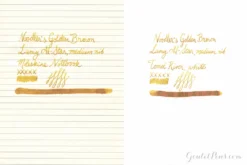 Noodler's Golden Brown
Lamy Al-Star, medium nib
Moleskine Notebook
xxxxx
Noodler's Golden Brown
Lamy Al-Star, medium nib
Tomoe River, white
xxxxx
GouletPens.com